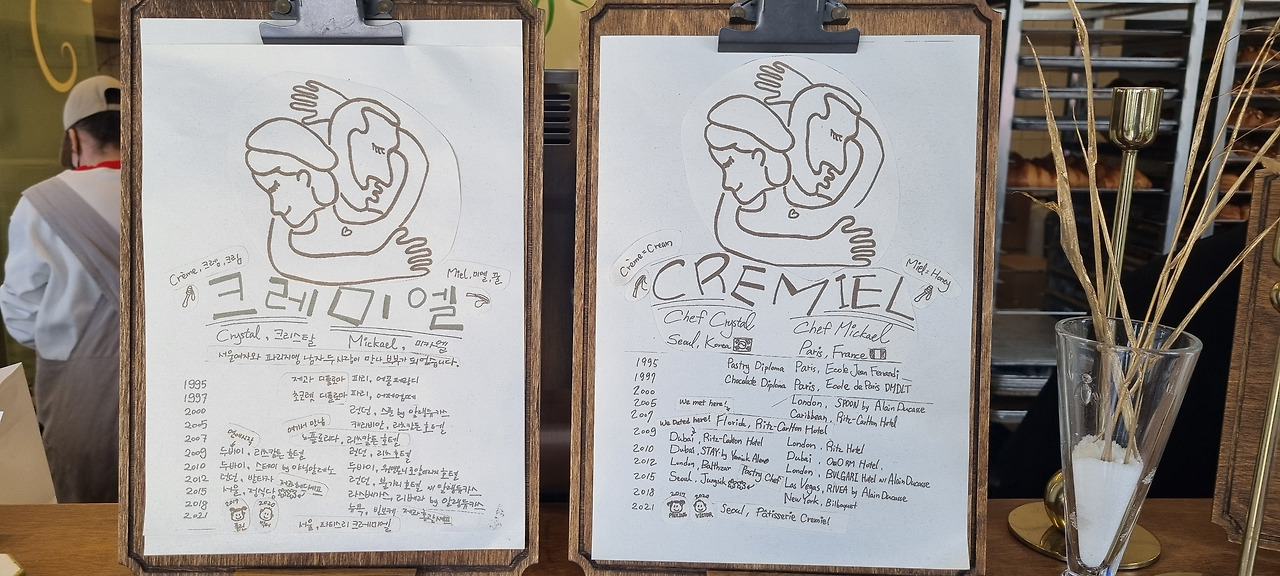 Crème, 크렘, 크림
Miel, 미엘, 꿀
크레미엘
Crystal, 크리스탈
Mickael, 미카엘
서울여자와 파리지앵 남자 두사람이 만나 부부가 되었습니다.
1995 제과 디플로마 파리,
1997 초콜렛 디플로마 파리,
2000 런던, 스푼 by 알랭듀카스
2005 여기서 만남 카리비안, 리츠칼튼 호텔
2007 연애시작 노플로리다, 리츠칼튼 호텔
2009 두바이, 리츠칼튼 호텔 런던, 리츠 호텔
2010 두바이, 스테이 by 야닉알레노 두바이, 호텔
2012 런던, 런던, 불가리 호텔 알랭듀카스
2015 서울, 정식당 라스베가스, 리베아 by 알랭듀카스
2018 2017 뉴욕,
2021 서울, 파티스리 크레미엘
Crème=Cream
Miel=Honey
CREMIEL
Chef Crystal
Seoul, Korea
Chef Mickael
Paris, France
1995 Pastry Diploma Paris, Ecole Jean Ferrandi
1997 Chocolate Diploma Paris, Ecole de Paris DMDLT
2000 London, SPOON by Alain Ducasse
2005 We met here! Caribbean, Ritz-Carlton Hotel
2007 We Dated here! Florida, Ritz-Carlton Hotel
2009 Dubai, Ritz-Carlton Hotel London, Ritz Hotel
2010 Dubai, STAY by Yannick Alleno Dubai, Hotel
2012 London, Balthazar Pastry Chef London, BVLGARI Hotel Alain Ducasse
2015 Seoul, Jungsik Las Vegas, RIVEA by Alain Ducasse
2018 2017 2020 New York,
2021 Seoul, Pâtisserie Cremiel